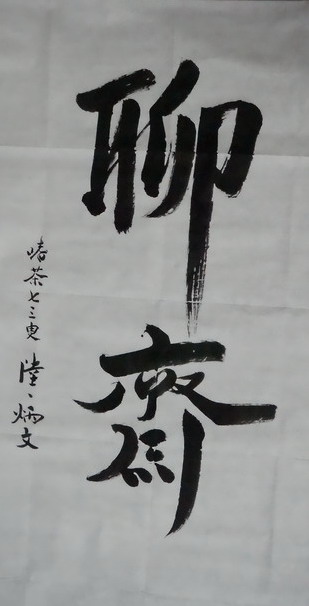 聊齋
嗜茶七三叟 陸炳文